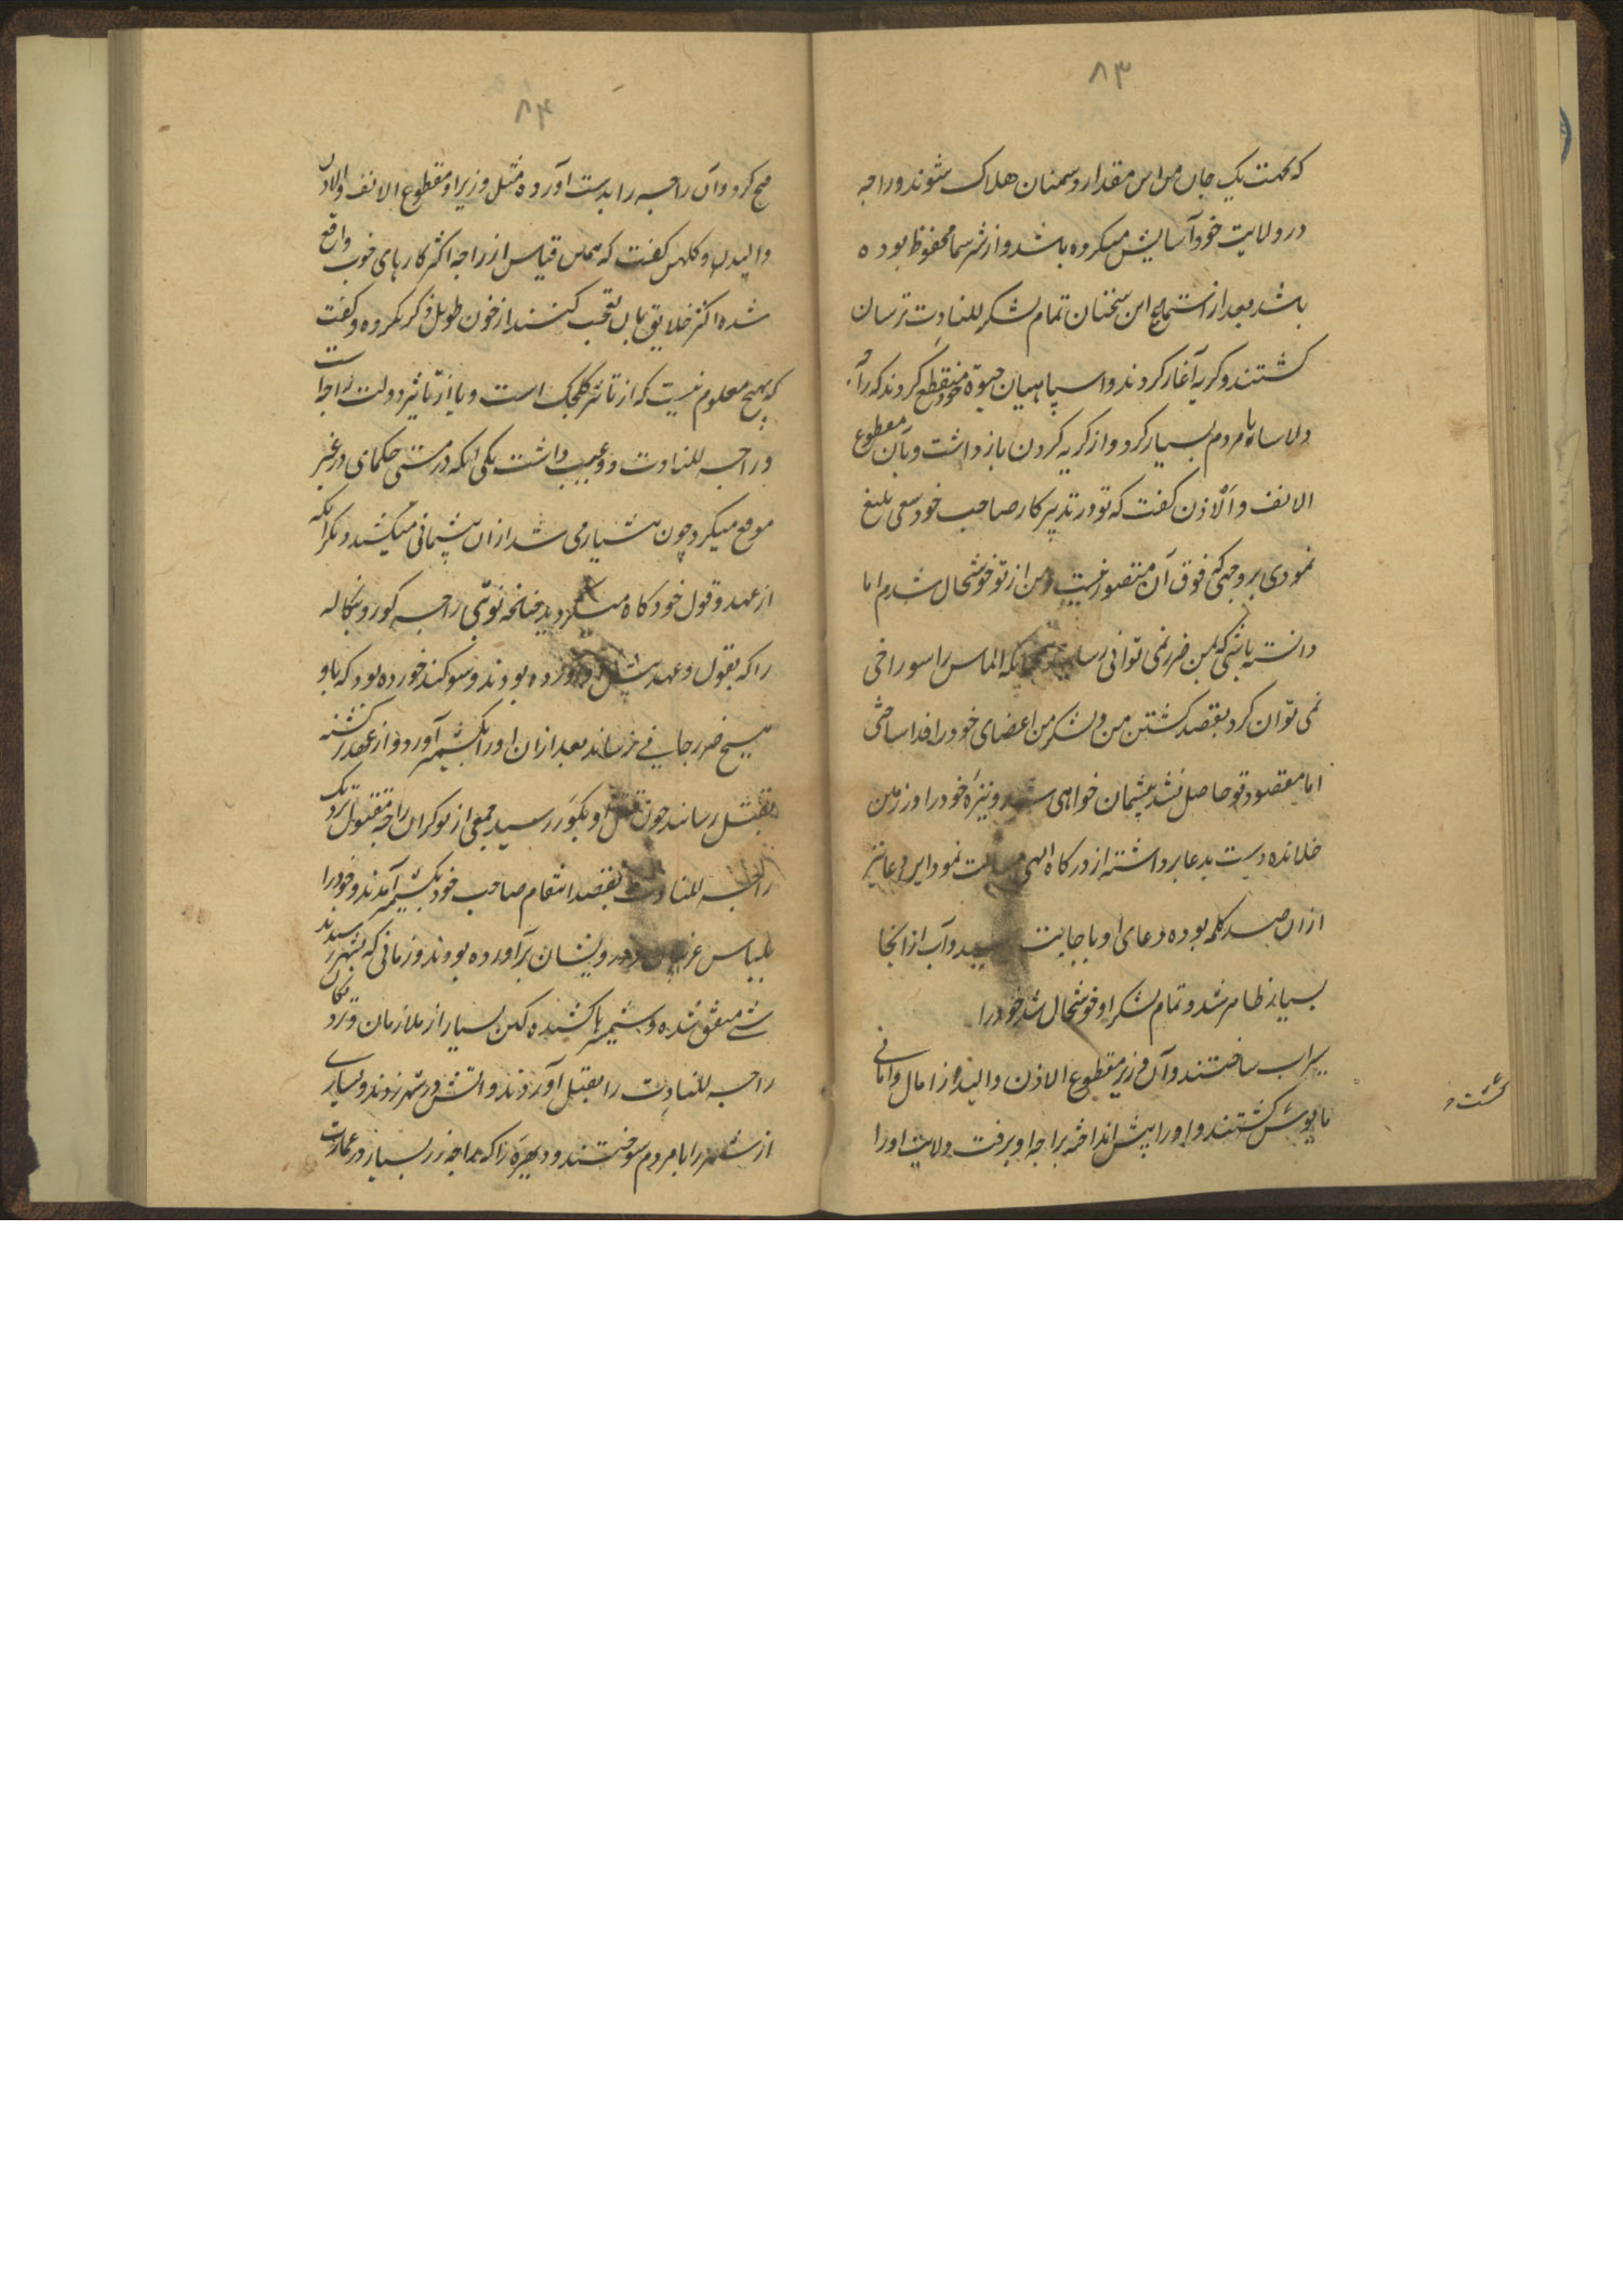 ۸۳
که بجهت یک جان من این مقدار دشمنان هلاک شوند و راجه
در ولایت خود آسایش میکرده باشد و از شر شما محفوظ بوده
باشد بعد از استماع این سخنان تمام لشکر للتادت ترسان
گشتند و گریه آغاز کردند و اسپاهیان حیوة خود منقطع کردند که راجه
دلاسا با مردم بسیار کرد و از گریه کردن باز داشت و بآن مقطوع
الانف و الاذن گفت که تو در تدبیر کار صاحب خود سعی بلیغ
نمودی بروجهی که فوق آن متصور نیست و من از تو خوشحال شدم اما
دانسته باشی که بمن ضرر نمی توانی رسانید همچنانکه الماس را سوراخی
نمی توان کرد بقصد کشتن من و لشکر من اعضای خود را فدا ساختی
اما مقصود تو حاصل نشد پشیمان خواهی شد و نیزه خود را در زمین
خلانده دست بدعا برداشته از درگاه الهی مسالت نمود این دعا نیز
ازان صد کلمه بوده دعای او باجابت رسید و آب از انجا
بسیار ظاهر شد و تمام لشکر او خوشحال شد خود را
سیراب ساختند و آن وزیر مقطوع الاذن والید از امال و امانی
مایوس گشتند و او را پیش انداخته براجه او برفت ولایت او را
گشت و
۸۴
فتح کرد و آن راجه را بدست آورده مثل وزیر او مقطوع الانف والاذن
والیدین و کلهن گفت که همین قیاس از راجه اکثر کارهای خوب واقع
شده اکثر خلایق بآن تعجب کنند از خون طویل ذکر نکرده و گفت
که هیچ معلوم نیست که از تاثیر کلجک است و یا از تاثیر دولت راجه است
و راجه للتادت دو عیب داشت یکی آنکه در مستی حکمهای در غیر
موقع میکرد چون هشیار می شد ازان پشیمانی میکشید و دیگر آنکه
از عهد و قول خود گاه میگردید چنانچه نوبتی راجه کور و بنگاله
را که بقول و عهد پیش او آورده بودند و سوگند خورده بود که باو
هیچ ضرر جانی نرساند بعد ازان او را بکشمیر آورد و از عهد گذشته
بقتل رسانید چون قتل او بکور رسید جمعی از نوکران راجه مقتول نزدیک
راجه للتادت بقصد انتقام صاحب خود بکشمیر آمدند و خود را
بلباس غریبان و درویشان برآورده بودند و زمانی که بشهر رسیدند
شبی متفق شده و شمشیرها کشیده کین بسیار از ملازمان و نزدیکان
راجه للتادت را بقتل آوردند و آتش در شهر زدند و بسیاری
از شهر را با مردم سوختند و دیهره را که راجه زر بسیار در عمارت